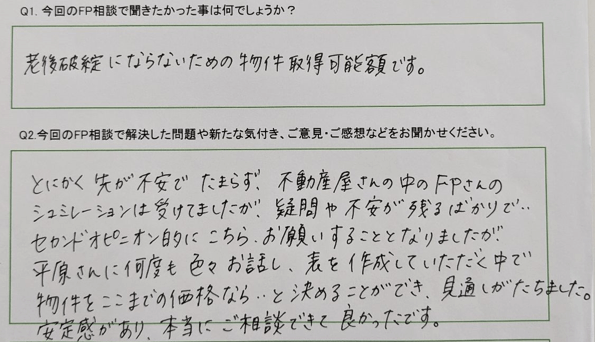 Q1. 今回のFP相談で聞きたかった事は何でしょうか？
老後破綻にならないための物件取得可能額です。
Q2.今回のFP相談で解決した問題や新たな気付き、ご意見・ご感想などをお聞かせください。
とにかく先が不安でたまらず、不動産屋さんの中のFPさんの
シュミレーションは受けてましたが、疑問や不安が残るばかりで‥
セカンドオピニオン的にこちら、お願いすることとなりましたが、
平原さんに何度も色々お話し、表を作成していただく中で
物件をここまでの価格なら‥と決めることができ、見通しがたちました。
安定感があり、本当にご相談できて良かったです。